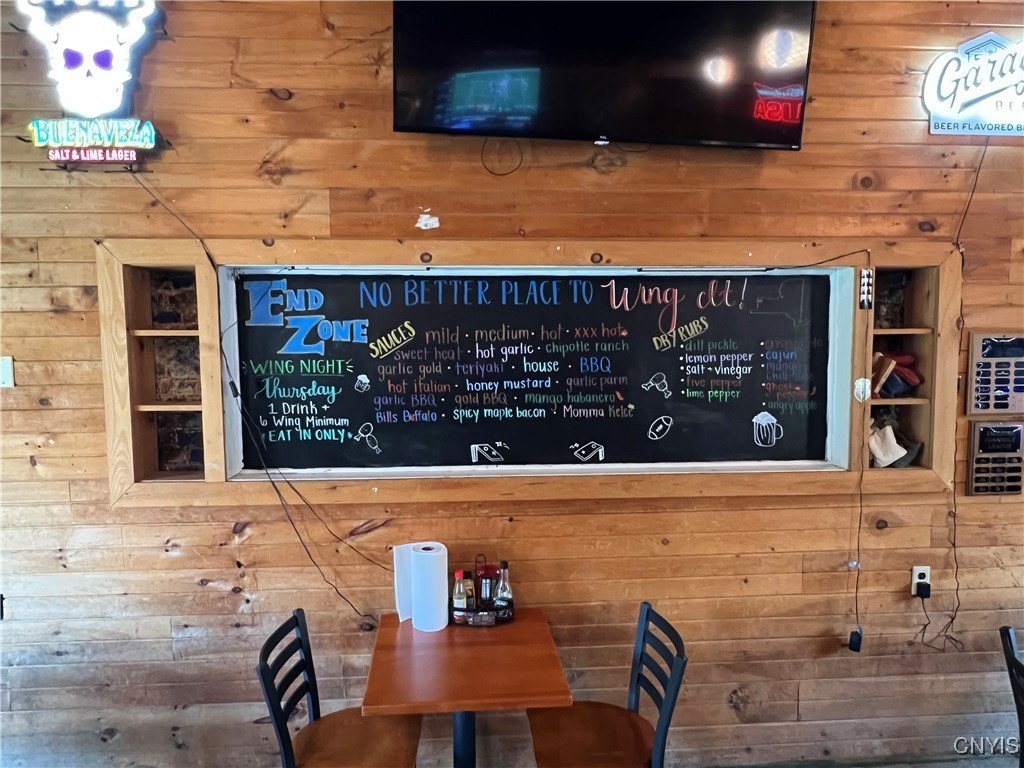 BUENAVEZA
SALT & LIME LAGER
TCL
USA
Garag
BEER FLAVORED B
END
ZONE
WING NIGHT
Thursday
1 DRINK +
6 WING MINIMUM
EAT IN ONLY
NO BETTER PLACE TO Wing It!
SAUCES
mild · medium · hot · xxx hot
sweet heat · hot garlic · chipotle ranch
garlic gold · teriyaki · house · BBQ
hot italian · honey mustard · garlic parm
garlic BBQ · gold BBQ · mango habanero
Bills Buffalo · spicy maple bacon · Momma Kelce
DRY RUBS
• dill pickle
• lemon pepper
• salt + vinegar
• five pepper
• lime pepper
• cajun
• mango
• ghost pepper
• angry apple
CORNHOLE
LEAGUE
CNYIS